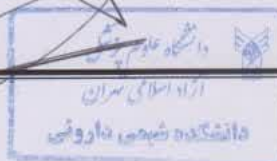 دانشگاه علوم پزشکی
آزاد اسلامی تهران
دانشکده شیمی دارویی